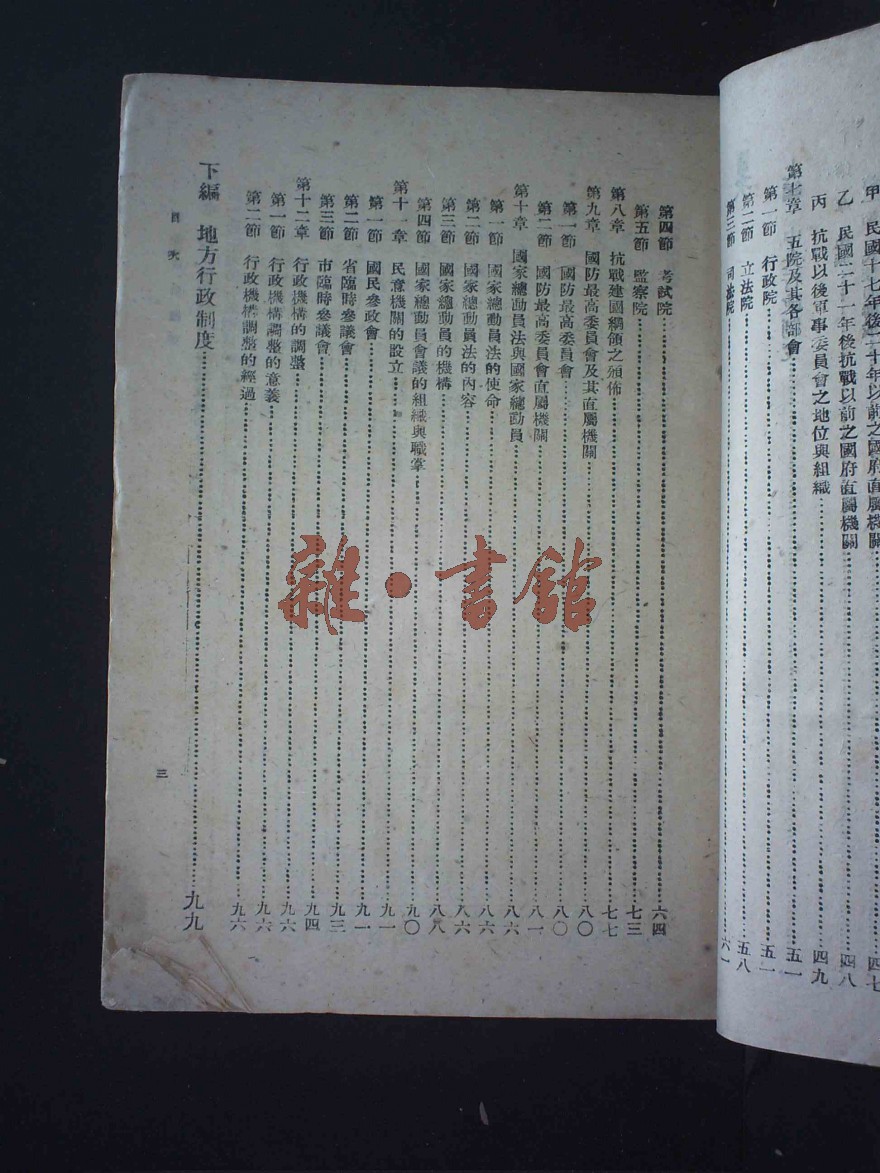 甲　民國十七年後二十年以前之國府直屬機關 四七
乙　民國二十一年後抗戰以前之國府直屬機關 四八
丙　抗戰以後軍事委員會之地位與組織……四九
第七章　五院及其各部會……五一
第一節　行政院……五一
第二節　立法院……五八
第三節　司法院……六一
第四節　考試院……六四
第五節　監察院……七三
第八章　抗戰建國綱領之頒佈……七七
第九章　國防最高委員會及其直屬機關……八〇
第一節　國防最高委員會……八〇
第二節　國防最高委員會直屬機關……八一
第十章　國家總動員法與國家總動員……八六
第一節　國家總動員法的使命……八六
第二節　國家總動員法的內容……八六
第三節　國家總動員的機構……八八
第四節　國家總動員會議的組織與職掌……九〇
第十一章　民意機關的設立……九一
第一節　國民參政會……九一
第二節　省臨時參議會……九三
第三節　市臨時參議會……九四
第十二章　行政機構的調整……九六
第一節　行政機構調整的意義……九六
第二節　行政機構調整的經過……九六
下編　地方行政制度……九九
目次
三
雜·書館